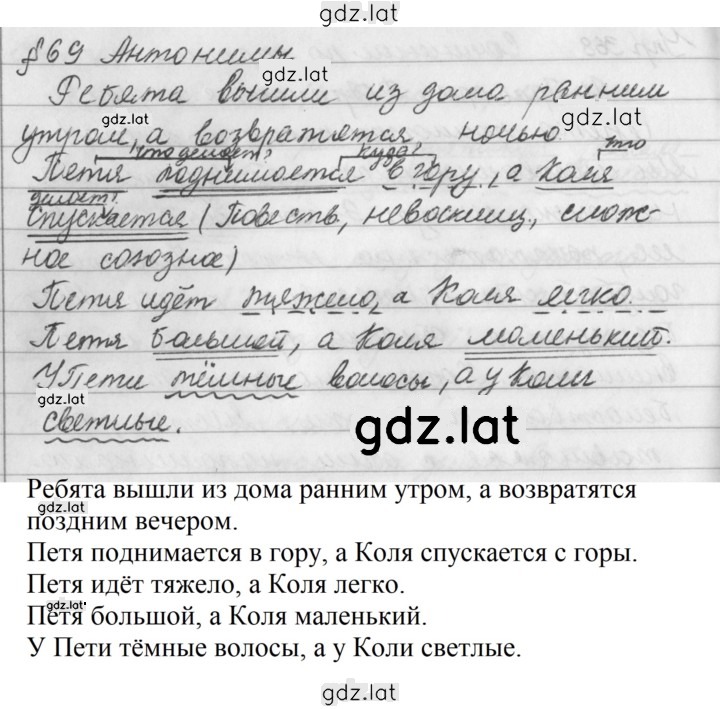 gdz.lat
§69 Антонимы
gdz.lat
Ребята вышли из дома ранним
gdz.lat
утром, а возвратятся ночью
что делает? куда? что
Петя поднимается в гору, а Коля
делает?
спускается (Повест, невосклиц, слож-
ное союзное)
Петя идёт тяжело, а Коля легко.
Петя большой, а Коля маленький.
У Пети тёмные волосы, а у Коли
gdz.lat
светлые.
gdz.lat
Ребята вышли из дома ранним утром, а возвратятся
gdz.lat
поздним вечером.
Петя поднимается в гору, а Коля спускается с горы.
Петя идёт тяжело, а Коля легко.
gdz.lat
Петя большой, а Коля маленький.
У Пети тёмные волосы, а у Коли светлые.
gdz.lat